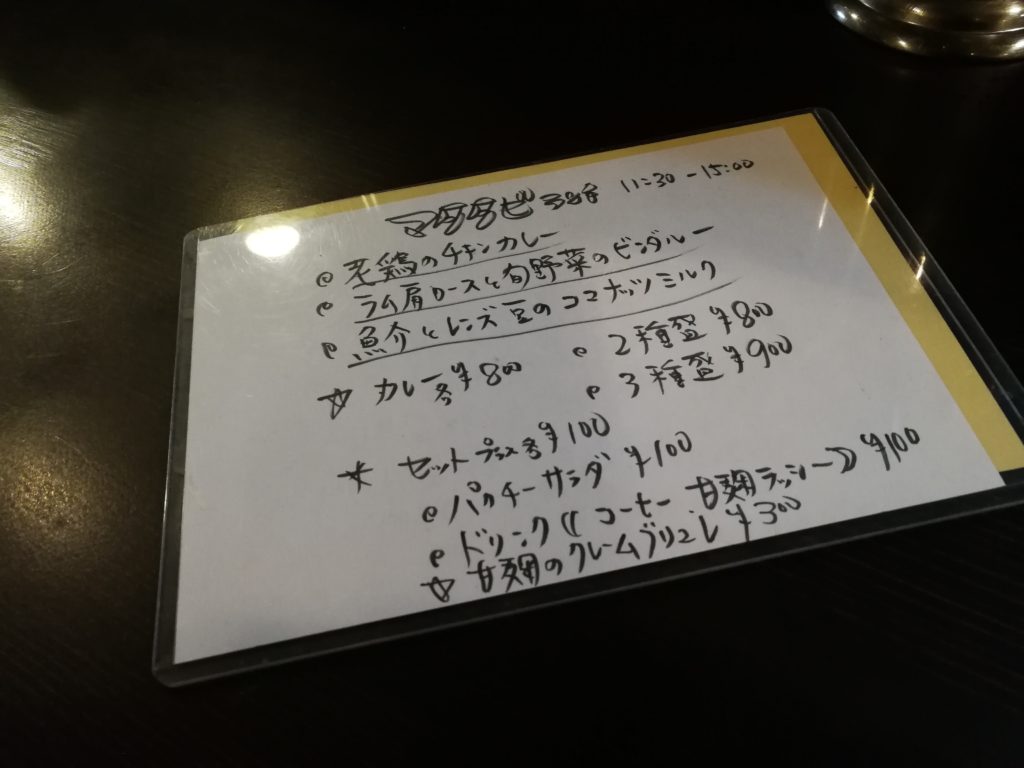 11:30-15:00
老鶏のチキンカレー
ラム肩ロースと旬野菜のビンダルー
魚介とレンズ豆のココナッツミルク
☆ カレー各¥800
2種盛¥800
3種盛¥900
セットプラス各¥100
パクチーサラダ ¥100
ドリンク(コーヒー 甘麹ラッシー) ¥100
☆ 甘麹のクレームブリュレ ¥300